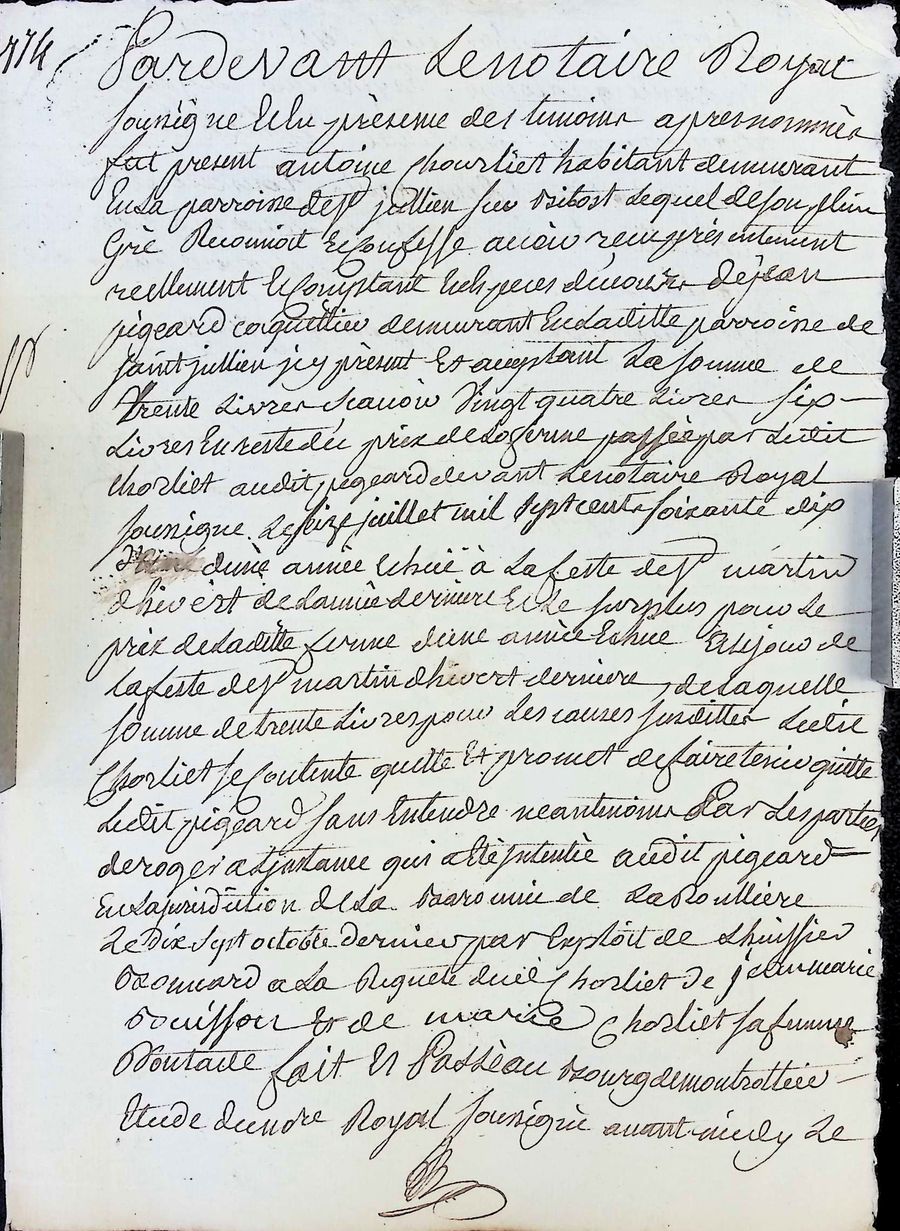 774
Pardevant Lenotaire Royal
soussigne Et En présence des temoins apres nommés
fut present antoine Chorliet habitant demeurant
En La parroisse de St jullien sur bibost Lequel de son plein
Gré Reconnoit Et Confesse avoir reçu présentement
reellement Et Comptant En Especes de cours De jean
pigeard coquettier demeurant En Laditte parroisse de
saint jullien jcy présent Et acceptant La somme de
trente Livres scavoir Vingt quatre Livres six
Livres En reste du prix de La ferme passée par Ledit
Chorliet audit pigeard devant Lenotaire Royal
soussigne Le seize juillet mil sept cents soixante dix
d'une année Echüe à La feste de St martin
dhivert de Lannée derniere Et Le surplus pour Le
prix de Laditte ferme d'une année Echüe Au jour de
La feste de St martin dhivert derniere, de Laquelle
somme de trente Livres pour Les causes susdittes Ledit
Chorliet se Contente quitte Et promet de faire tenir quitte
Ledit pigeard sans Entendre neantmoins Par Les parties
deroger a Ljnstance qui a Eté jntentée audit pigeard
En La jurisdiction de La Baronnie de La Roulliere
Le dix sept octobre dernier par Exploit de Lhuissier
Bonnard a La Requete dudit Chorliet De jean marie
Bouisson Et de marie Chorliet sa femme
Dontacte fait Et Passé au Bourg de montrottier
Etude du nore Royal soussigné avant midy Le